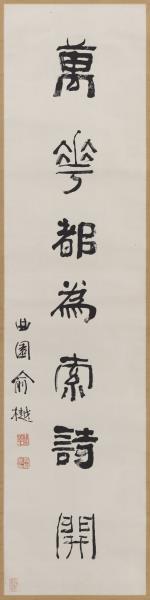 萬花都為索詩開
曲園俞樾